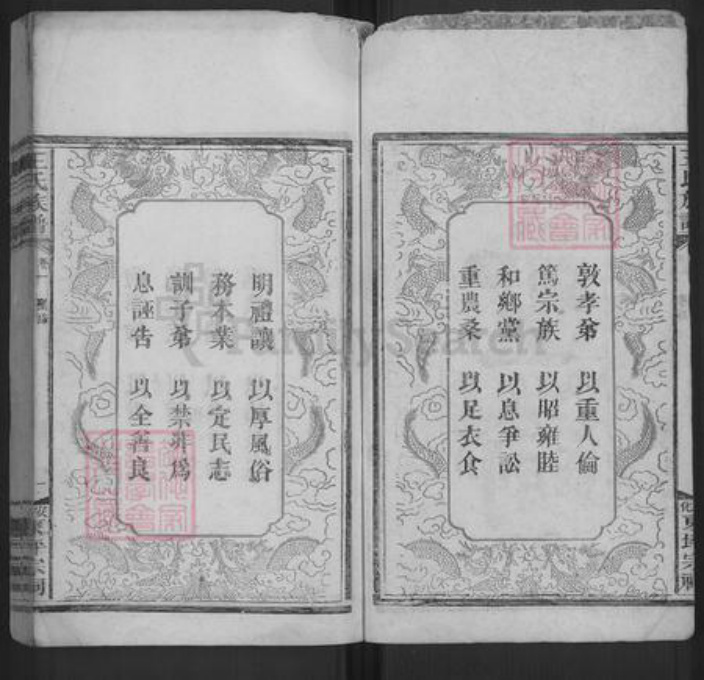 敦孝弟 以重人倫
篤宗族 以昭雍睦
和鄉黨 以息爭訟
重農桑 以足衣食
明禮讓 以厚風俗
務本業 以定民志
訓子弟 以禁非爲
息誣告 以全善良
王氏族譜
FamilySearch